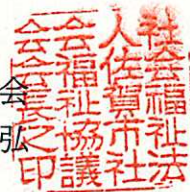 会
弘
社会福祉法
人佐賀市社
会福祉協議
会会長之印